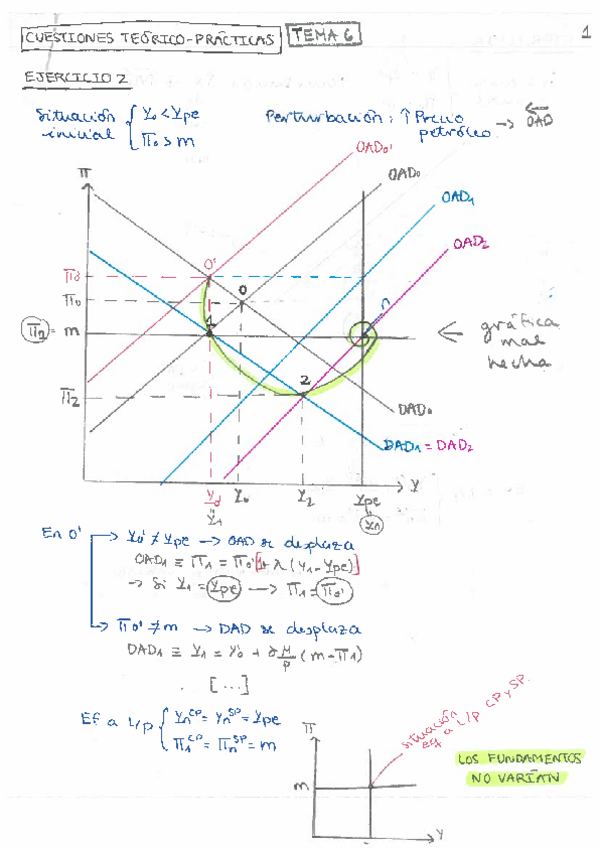 CUESTIONES TEÓRICO-PRÁCTICAS TEMA 6
1
EJERCICIO 2
Situación inicial { Y₀ < Ype
Π₀ > m
Perturbación: ↑ Precio petróleo → OAD
OAD₀'
OAD₀
OAD₁
OAD₂
Π
0'
Π₀
0
1
n
m
← gráfica mal hecha
2
Π₂
DAD₀
DAD₁ = DAD₂
Y
Y₁
Y₀
Y₂
Ype
Yn
En 0' → Y₀' ≠ Ype → OAD se desplaza
OAD₁ ≡ Π₁ = Π₀' [1+ λ (Y₁ - Ype)]
→ Si Y₁ = Ype → Π₁ = Π₀'
→ Π₀' ≠ m → DAD se desplaza
DAD₁ ≡ Y₁ = Y₀' + (m - Π₁)
. [...]
Ef a L/p { Yn^CP = Yn^SP = Ype
= Πn^SP = m
Π
situación eq a L/P CP y SP.
m
Y
LOS FUNDAMENTOS
NO VARÍAN